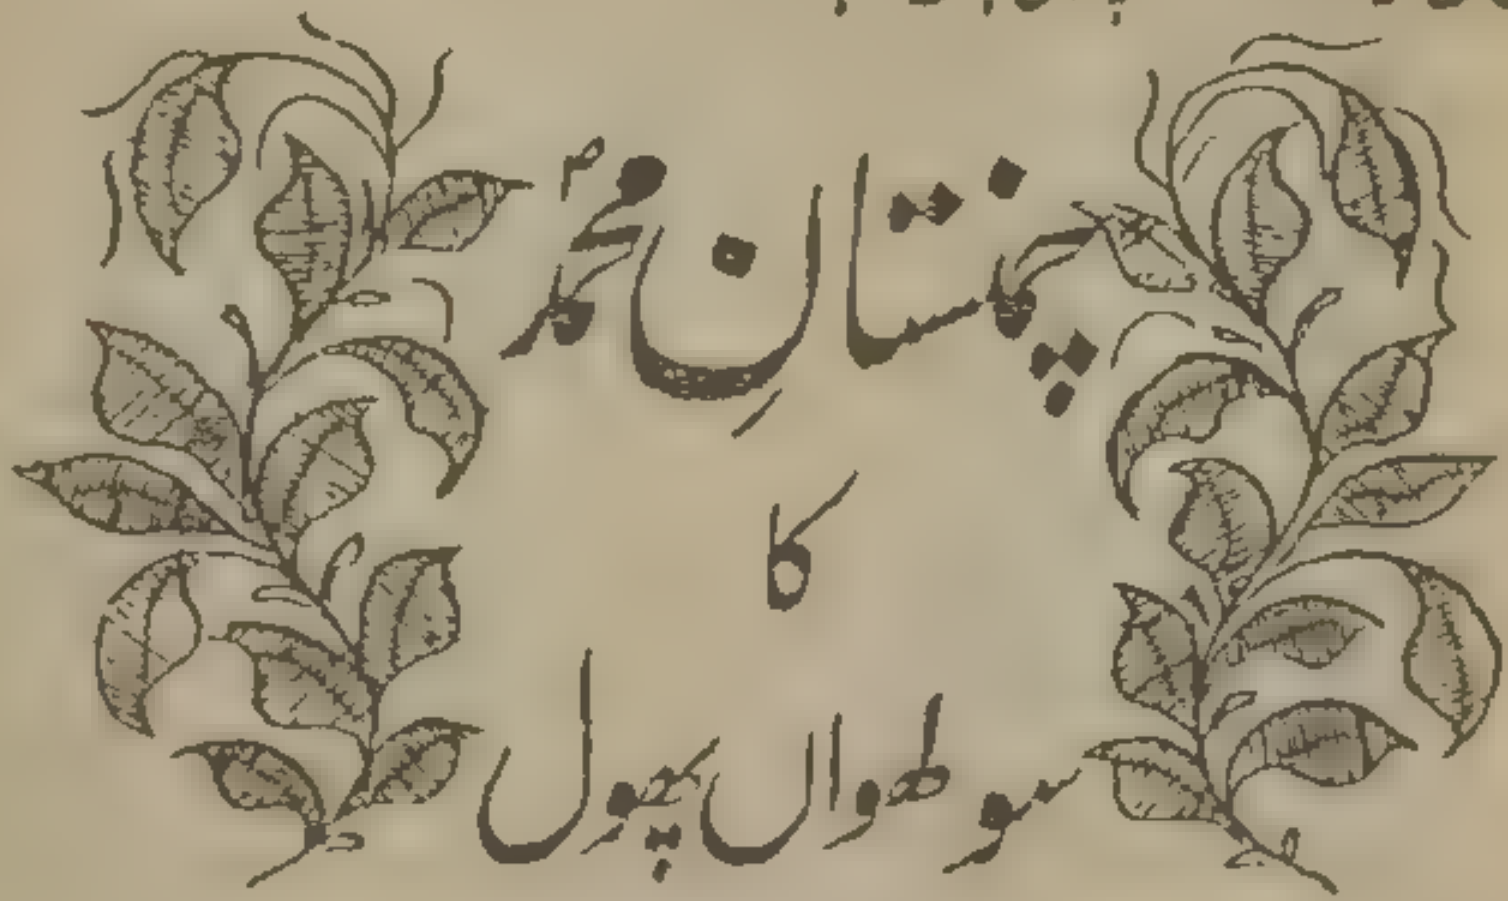 چمنستانِ محمدؐ
کا
سولھواں پھول